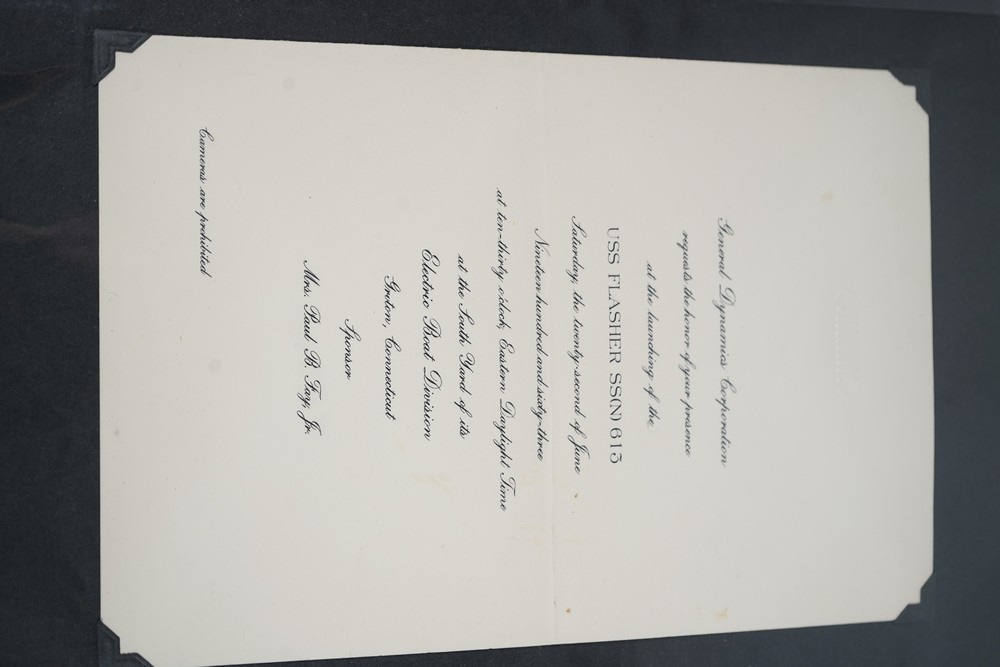 General Dynamics Corporation
requests the honor of your presence
at the launching of the
USS FLASHER SS(N) 613
Saturday, the twenty-second of June
Nineteen hundred and sixty-three
at ten-thirty o'clock, Eastern Daylight Time
at the South Yard of its
Electric Boat Division
Groton, Connecticut
Sponsor
Mrs. Paul B. Fay, Jr.
Cameras are prohibited